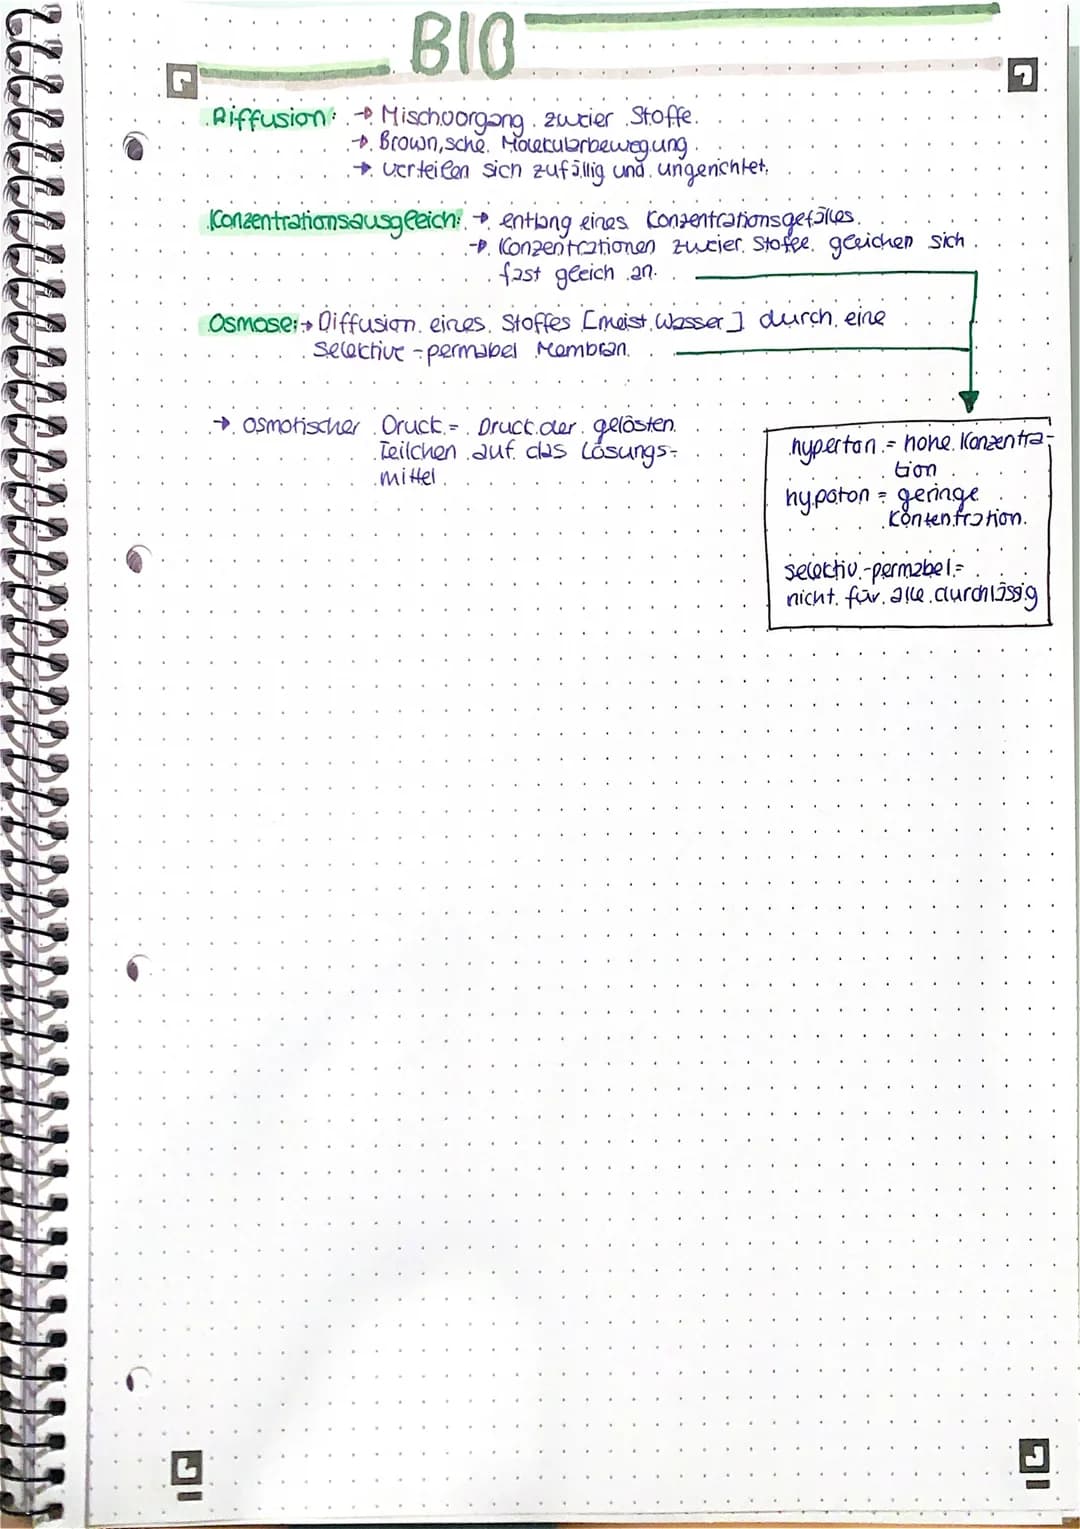 BIO
Diffusion: → Mischvorgang zweier Stoffe.
→ Brown,sche Molekularbewegung
→ verteilen sich zufällig und ungerichtet.
Konzentrationsausgleich: → entlang eines Konzentrationsgefälles.
→ Konzentrationen zweier Stoffe gleichen sich
fast gleich an.
Osmose: → Diffusion eines Stoffes [meist Wasser] durch eine
selektive-permabel Membran.
→ osmotischer Druck = Druck der gelösten
Teilchen auf das Lösungs-
mittel
hyperton = hohe Konzentra-
tion
hypoton = geringe
Kontentration.
selektiv-permabel =
nicht für alle durchlässig